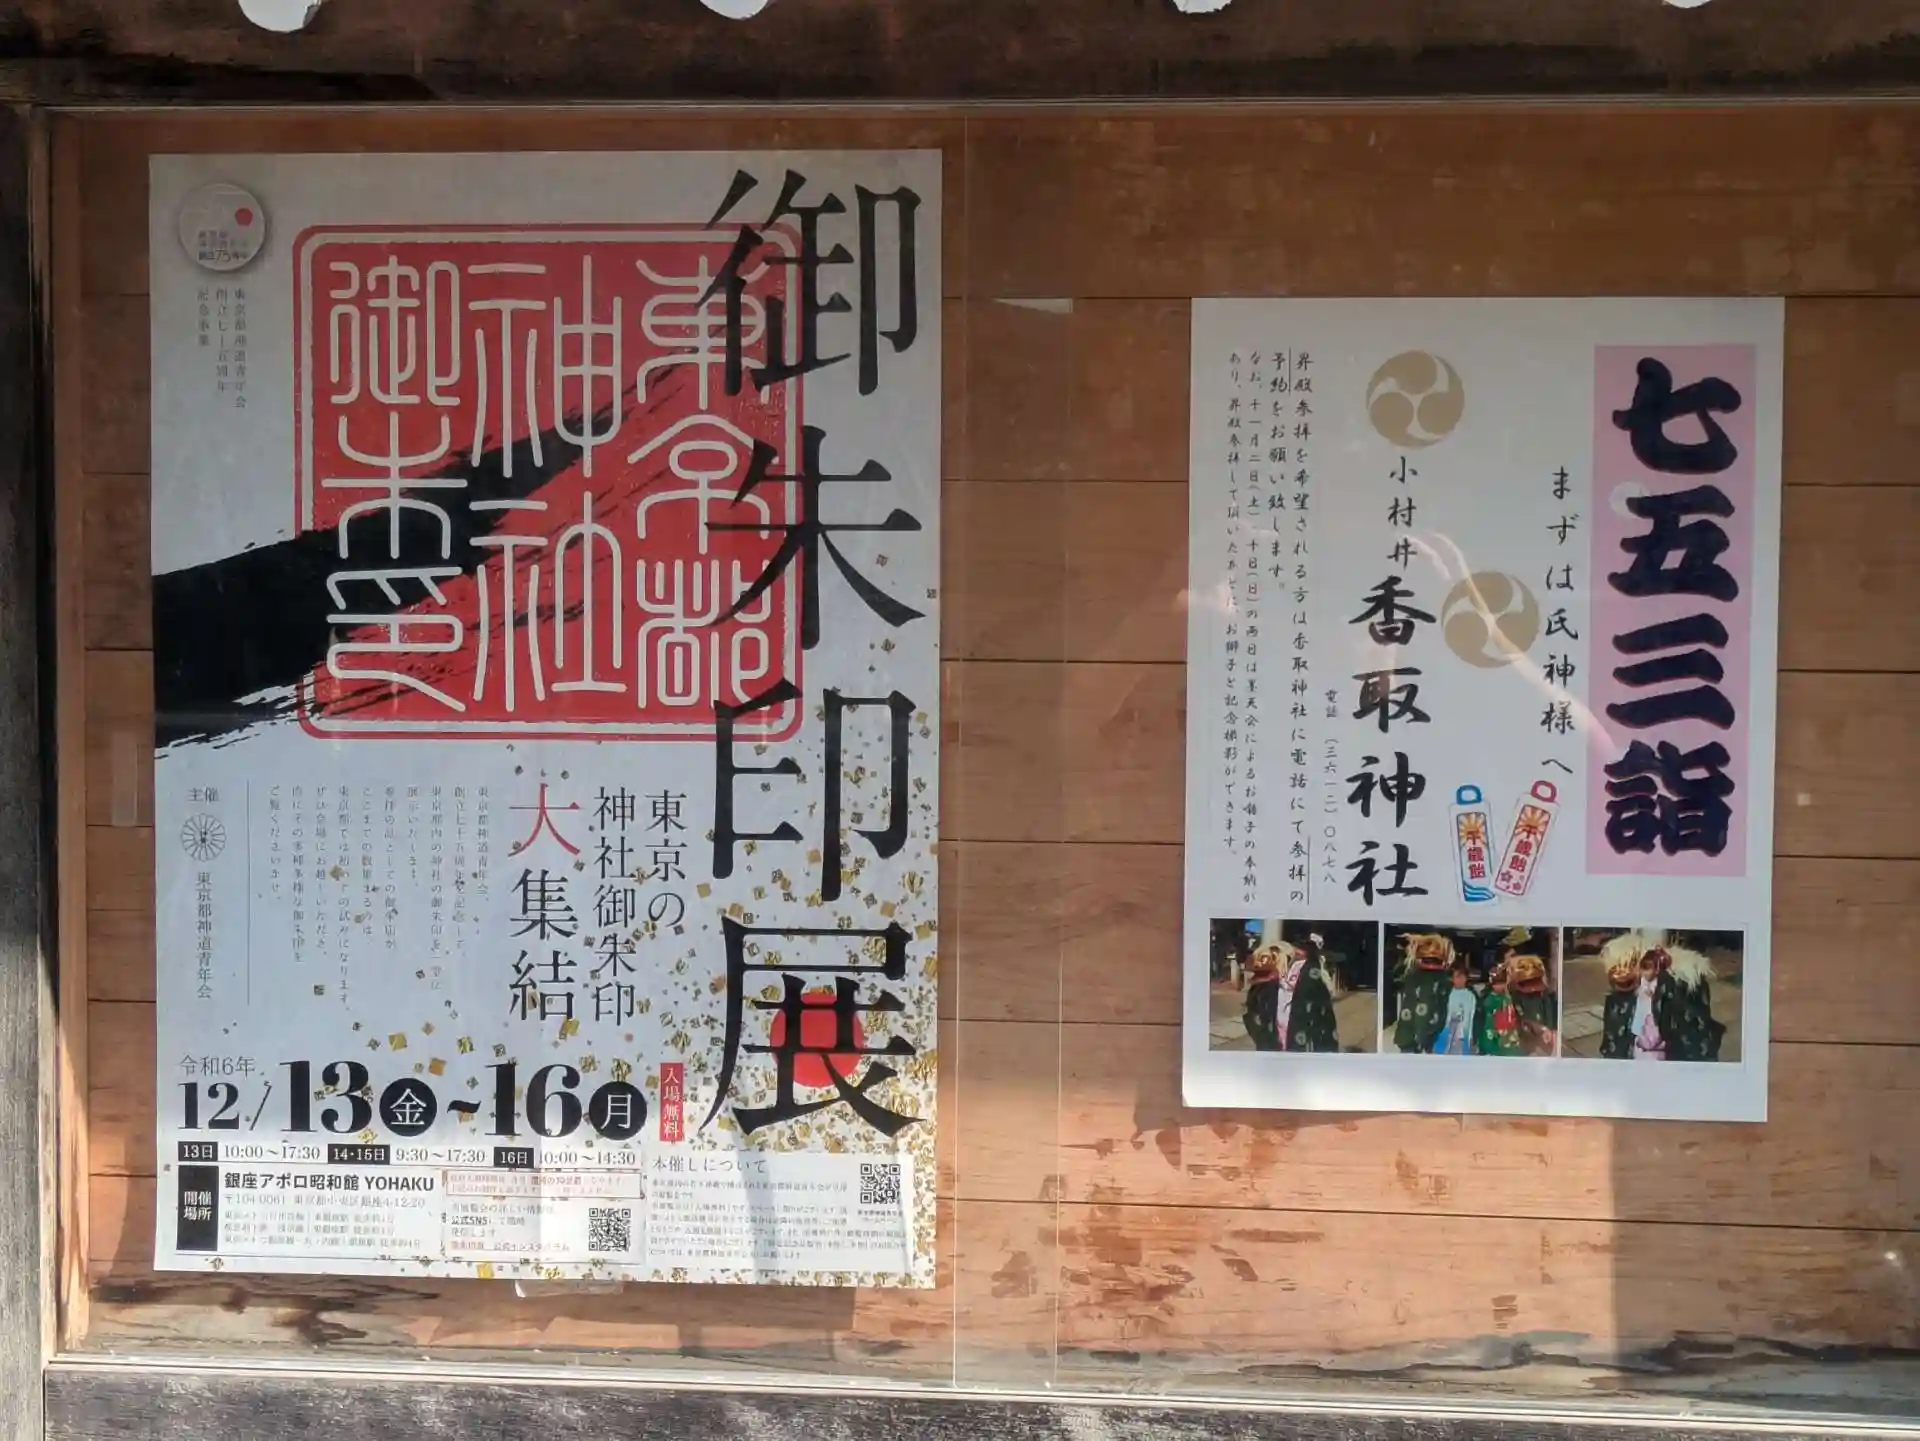 御朱印展
東京都
神社
御朱印
創立75周年
東京都神道青年会
創立七十五周年
記念事業
東京の
神社御朱印
大集結
東京都神道青年会
創立七十五周年を記念して、
東京都内の神社の御朱印を一堂に
展示いたします。
参拝の証としての御朱印が
ここまでの数集まるのは、
東京都では初めての試みになります。
ぜひ会場にお越しいただき、
ご覧くださいませ。
主催
東京都神道青年会
令和6年
12/13金~16月
入場無料
13日 10:00~17:30 14・15日 9:30~17:30 16日 10:00~14:30
開催場所
銀座アポロ昭和館 YOHAKU
〒104-0061 東京都中央区銀座4-12-20
公式SNSにて随時
発信します
本催しについて
七五三詣
まずは氏神様へ
小村井
香取神社
電話 (三六一二)〇八七八
昇殿参拝を希望される方は香取神社に電話にて参拝の
予約をお願い致します。
なお、十一月二日(土)、十日(日)の両日は墨天会によるお獅子の奉納が
あり、昇殿参拝して頂いたあとに、お獅子と記念撮影ができます。
千歳飴
千歳飴